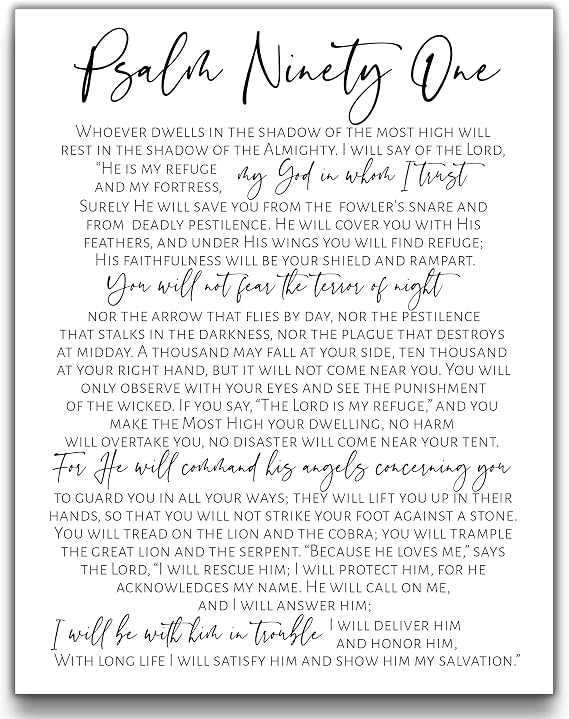 Psalm Ninety One
Whoever dwells in the shadow of the most high will
rest in the shadow of the Almighty. I will say of the Lord,
“He is my refuge
and my fortress, my God in whom I trust
Surely He will save you from the fowler's snare and
from deadly pestilence. He will cover you with His
feathers, and under His wings you will find refuge;
His faithfulness will be your shield and rampart.
You will not fear the terror of night
nor the arrow that flies by day, nor the pestilence
that stalks in the darkness, nor the plague that destroys
at midday. A thousand may fall at your side, ten thousand
at your right hand, but it will not come near you. You will
only observe with your eyes and see the punishment
of the wicked. If you say, “The Lord is my refuge,” and you
make the Most High your dwelling, no harm
will overtake you, no disaster will come near your tent.
For He will command his angels concerning you
to guard you in all your ways; they will lift you up in their
hands, so that you will not strike your foot against a stone.
You will tread on the lion and the cobra; you will trample
the great lion and the serpent. “Because he loves me,” says
the Lord, “I will rescue him; I will protect him, for he
acknowledges my name. He will call on me,
and I will answer him;
I will be with him in trouble I will deliver him
and honor him,
With long life I will satisfy him and show him my salvation.”